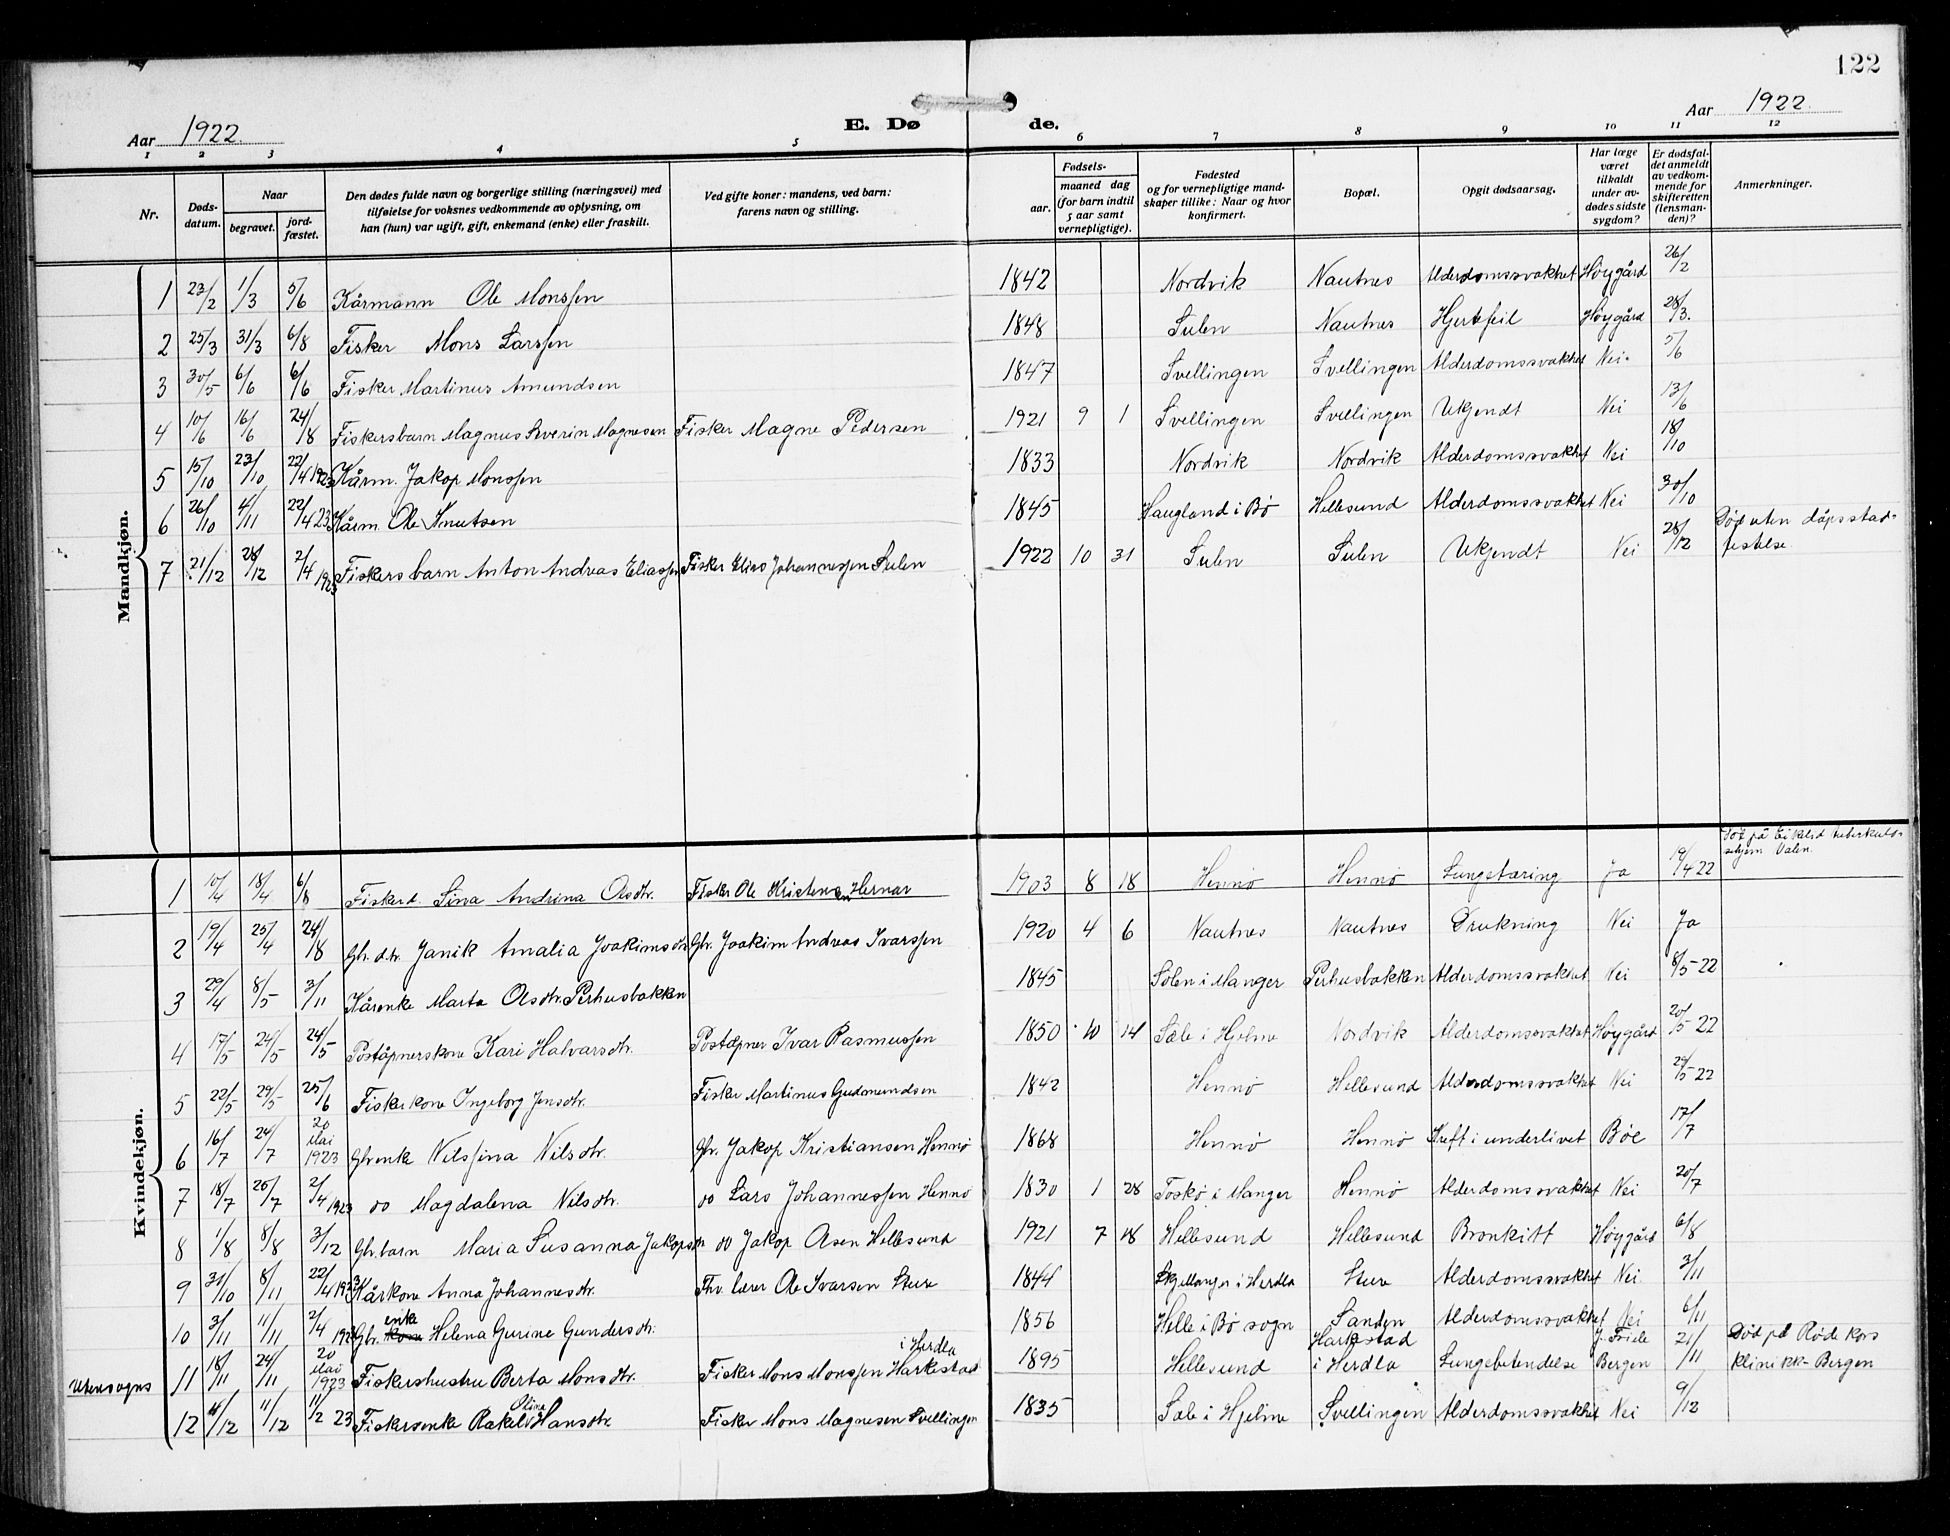 122
Aar 1922.
E. Dø de.
Aar 1922.
1 2 3 4 5 6 7 8 9 10 11 12
Nr.
Døds-datum.
Naar
begravet.
jord-fæstet.
Den dødes fulde navn og borgerlige stilling (næringsvei) med tilføielse for voksnes vedkommende av oplysning, om han (hun) var ugift, gift, enkemand (enke) eller fraskilt.
Ved gifte koner: mandens, ved barn: farens navn og stilling.
Fødsels-
aar.
maaned dag (for barn indtil 5 aar samt vernepligtige).
Fødested og for vernepligtige mandskaper tillike: Naar og hvor konfirmert.
Bopæl.
Opgit dødsaarsag.
Har læge været tilkaldt under avdødes sidste sygdom?
Er dødsfaldet anmeldt av vedkommende for skifteretten (lensmanden)?
Anmerkninger.
Mandkjøn.
1 23/2 1/3 5/6 Kårmann Ole Monssen 1842 Nordvik Nautnes Alderdomssvakhet Høygård 26/2
2 25/3 31/3 6/8 Fisker Mons Larssen 1848 Sulen Nautnes Hjertefeil Høygård 28/3.
3 30/5 6/6 6/6 Fisker Martinus Amundsen 1847 Svellingen Svellingen Alderdomssvakhet Nei. 5/6
4 10/6 16/6 24/8 Fiskersbarn Magnus Severin Magnesen Fisker Magne Pedersen 1921 9 1 Svellingen Svellingen Ukjendt Nei 13/6
5 15/10 23/10 22/4 1923 Kårm. Jakop Monssen 1833 Nordvik Nordvik Alderdomssvakhet Nei 18/10
6 26/10 4/11 22/4 23 Kårm. Ole Knutsen 1845 Haugland i Bø Hellesund Alderdomssvakhet Nei 30/10
7 21/12 28/12 2/4 1923 Fiskersbarn Anton Andreas Eliassen Fisker Elias Johannessen Sulen 1922 10 31 Sulen Sulen Ukjendt Nei 28/12 Død uten dåpsstadfestelse
Kvindekjøn.
1 10/4 18/4 6/8 Fiskerd. Sina Andrina Olsdtr. Fisker Ole Kristensen Hernar 1903 8 18 Hennø Hennø Lungetæring Ja 19/4 22 Død på Eikelid tuberkulosehjem Valen.
2 19/4 25/4 24/8 Gbr. dtr. Janik Amalia Joakimsdtr. Gbr. Joakim Andreas Ivarssen 1920 4 6 Nautnes Nautnes Drukning Nei Ja
3 29/4 8/5 3/11 Kårenke Marta Olsdtr. Perhusbakken 1845 Solen i Manger Perhusbakken Alderdomssvakhet Nei 8/5 - 22
4 17/5 24/5 24/5 Poståpnerskone Kari Halvarsdtr. Postæpner Ivar Rasmussen 1850 10 14 Sæle i Hjelme Nordvik Alderdomssvakhet Høygård 20/5 - 22
5 22/5 29/5 25/6 Fiskerkone Ingeborg Jensdtr. Fisker Martinus Gudmundsen 1842 Hennø Hellesund Alderdomssvakhet Nei 29/5 - 22
6 16/7 24/7 20 Mai 1923 Gbrenke Nilssina Nilsdtr. Gbr. Jakop Kristiansen Hennø 1868 Hennø Hennø Kreft i underlivet Bøe 17/7
7 18/7 25/7 2/4 1923 do Magdalena Nilsdtr. do Lars Johannessen Hennø 1830 1 28 Toskø i Manger Hennø Alderdomssvakhet Nei 20/7
8 1/8 8/8 3/12 Gbr. barn Maria Susanna Jakopsdtr do Jakop Åsen Hellesund 1921 7 18 Hellesund Hellesund Bronkitt Høygård 6/8
9 31/10 8/11 22/4 1923 Kårkone Anna Johannesdtr. Fhv. lærer Ole Ivarsen Sture 1844 Skjellanger i Herdla Sture Alderdomssvakhet Nei 3/11
10 3/11 11/11 2/4 1923 Gbr. kone enke Helena Gurine Gundersdtr. 1856 Helle i Bø sogn Sandøn Alderdomssvakhet Nei 6/11
Utensogns 11 18/11 24/11 20 Mai 1923 Fiskershustru Berta Monsdtr. Fisker Mons Monssen Harkestad i Herdla 1895 Hellesund Harkestad i Herdla Lungebetendelse J. Friele Bergen 21/11 Død på Røde kors klinikk - Bergen
12 4/12 11/12 11/2 23 Fiskersenke Rakel Olina Hansdtr. Fisker Mons Magnesen Svellingen 1835 Sæle i Hjelme Svellingen Alderdomssvakhet Nei 9/12